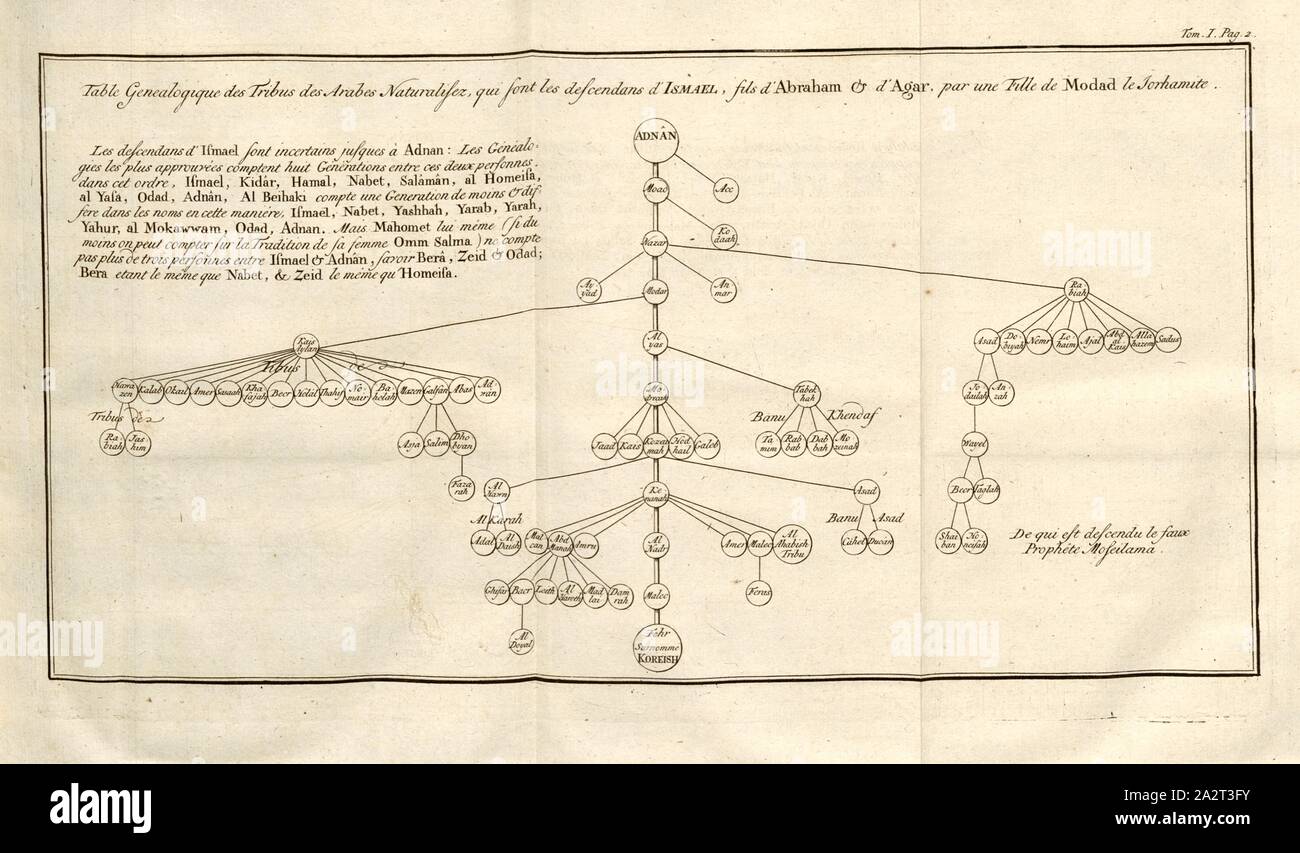 Tom. I. Pag. 2.
Table Genealogique des Tribus des Arabes Naturalisez, qui sont les descendans d'ISMAEL, fils d'Abraham & d'Agar. par une Fille de Modad le Jorhamite.
Les descendans d'Ismael sont incertains jusques à Adnan: Les Généalo-
gies les plus approuvées comptent huit Générations entre ces deux personnes.
dans cet ordre, Ismael, Kidâr, Hamal, Nabet, Salâmân, al Homeisa,
al Yasâ, Odad, Adnân, Al Beihaki compte une Generation de moins & dif
fère dans les noms en cette manière, Ismael, Nabet, Yashhah, Yarab, Yarah,
Yahur, al Mokawwam, Odad, Adnan. Mais Mahomet lui même (si du
moins on peut compter sur la Tradition de sa femme Omm Salma) ne compte
pas plus de trois personnes entre Ismael & Adnân, savoir Berâ, Zeid & Odad;
Bera etant le même que Nabet, & Zeid le même qu'Homeisa.
ADNÂN
Moad
Acc
Ko
daah
Nazar
Ay
yad
Modar
An
mar
Ra
biah
Kais
Aylan
Tribus de
Al
yas
Asad
Do-
biyah
Nemr
Le
haim
Ajal
Abd
al
Kais
Alla
hazem
Sadus
Hawa
zen
Kalab
Okail
Amer
Saaah
Kha
fajah
Becr
Helal
Thakif
No-
mair
Ba
helah
Mazen
Galfân
Abas
Ad-
wân
Mo
dreah
Tabek
hah
Banu Khendaf
Jo
dailah
An-
zah
Tribus de
Ra
biah
Jas
him
Asja
Salim
Dho
byan
Saad
Kais
Kozai
mah
Hod
hail
Galeb
Ta
mim
Rab
bab
Dab
bah
Mo
zainah
Wayel
Faza
rah
Al
Hawn
Ke
nanah
Asad
Becr
Taglab
Al Karah
Banu Asad
Adal
Al
Daish
Mal
can
Abd
Manah
Amru
Al
Nadr
Amer
Malec
Al
Ahabish
Tribu
Cahel
Ducân
Shai
ban
Ho-
neifah
De qui est descendu le faux
Prophête Moseilama.
Ghifar
Bacr
Leeth
Al
Hareth
Mad
lai
Dam
rah
Malec
Feras
Al
Doyal
Fehr
Surnomme
KOREISH
alamy
alamy
alamy
alamy
Image ID: 2A2T3FY
www.alamy.com